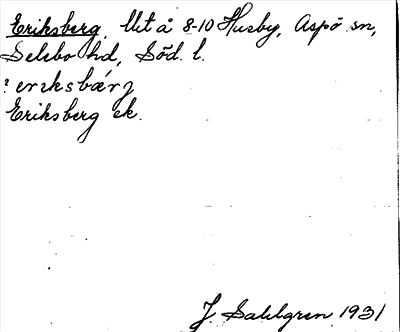 Eriksberg. Ut å 8-10 Husby, Aspö sn,
Selebo hd, Söd. l.
Eriksberg ek.
J. Sahlgren 1931